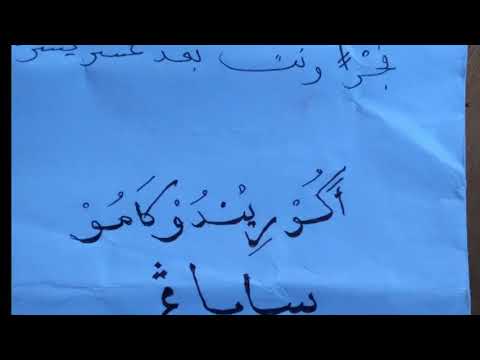 فجْر # بعد عسر يسر
أَكُوْ رِيْندُوْ كَامُوْ
ساياڠ